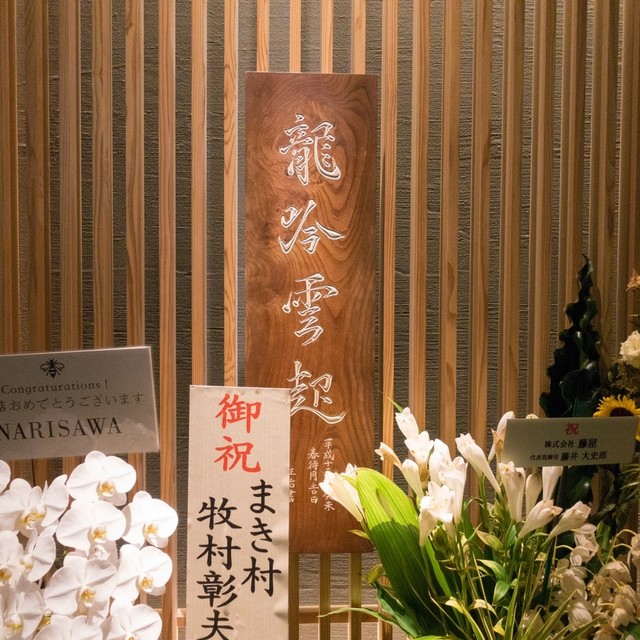 龍吟雲起
Congraturations!
店おめでとうございます
NARISAWA
御祝
まき村
牧村彰夫
祝
株式会社 藤屋
代表取締役 藤井 大史郎